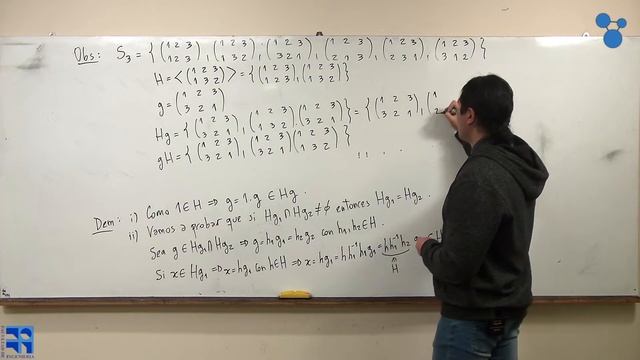 Obs: S₃ = { (1 2 3 / 1 2 3), (1 2 3 / 1 3 2), (1 2 3 / 3 2 1), (1 2 3 / 2 1 3), (1 2 3 / 2 3 1), (1 2 3 / 3 1 2) }
H = < (1 2 3 / 1 3 2) > = { (1 2 3 / 1 2 3), (1 2 3 / 1 3 2) }
g = (1 2 3 / 3 2 1)
Hg = { (1 2 3 / 3 2 1), (1 2 3 / 1 3 2) · (1 2 3 / 3 2 1) } = { (1 2 3 / 3 2 1), (1 / 2
gH = { (1 2 3 / 3 2 1), (1 2 3 / 3 2 1) (1 2 3 / 1 3 2) }
Dem: i) Como 1 ∈ H ⇒ g = 1.g ∈ Hg.
ii) Vamos a probar que si Hg₁ ∩ Hg₂ ≠ ∅ entonces Hg₁ = Hg₂.
Sea g ∈ Hg₁ ∩ Hg₂ ⇒ g = h₁g₁ = h₂g₂ con h₁, h₂ ∈ H.
Si x ∈ Hg₁ ⇒ x = hg₁ con h ∈ H ⇒ x = hg₁ = h h₁⁻¹ h₁ g₁ = h h₁⁻¹ h₂ g
H
INGENIERIA